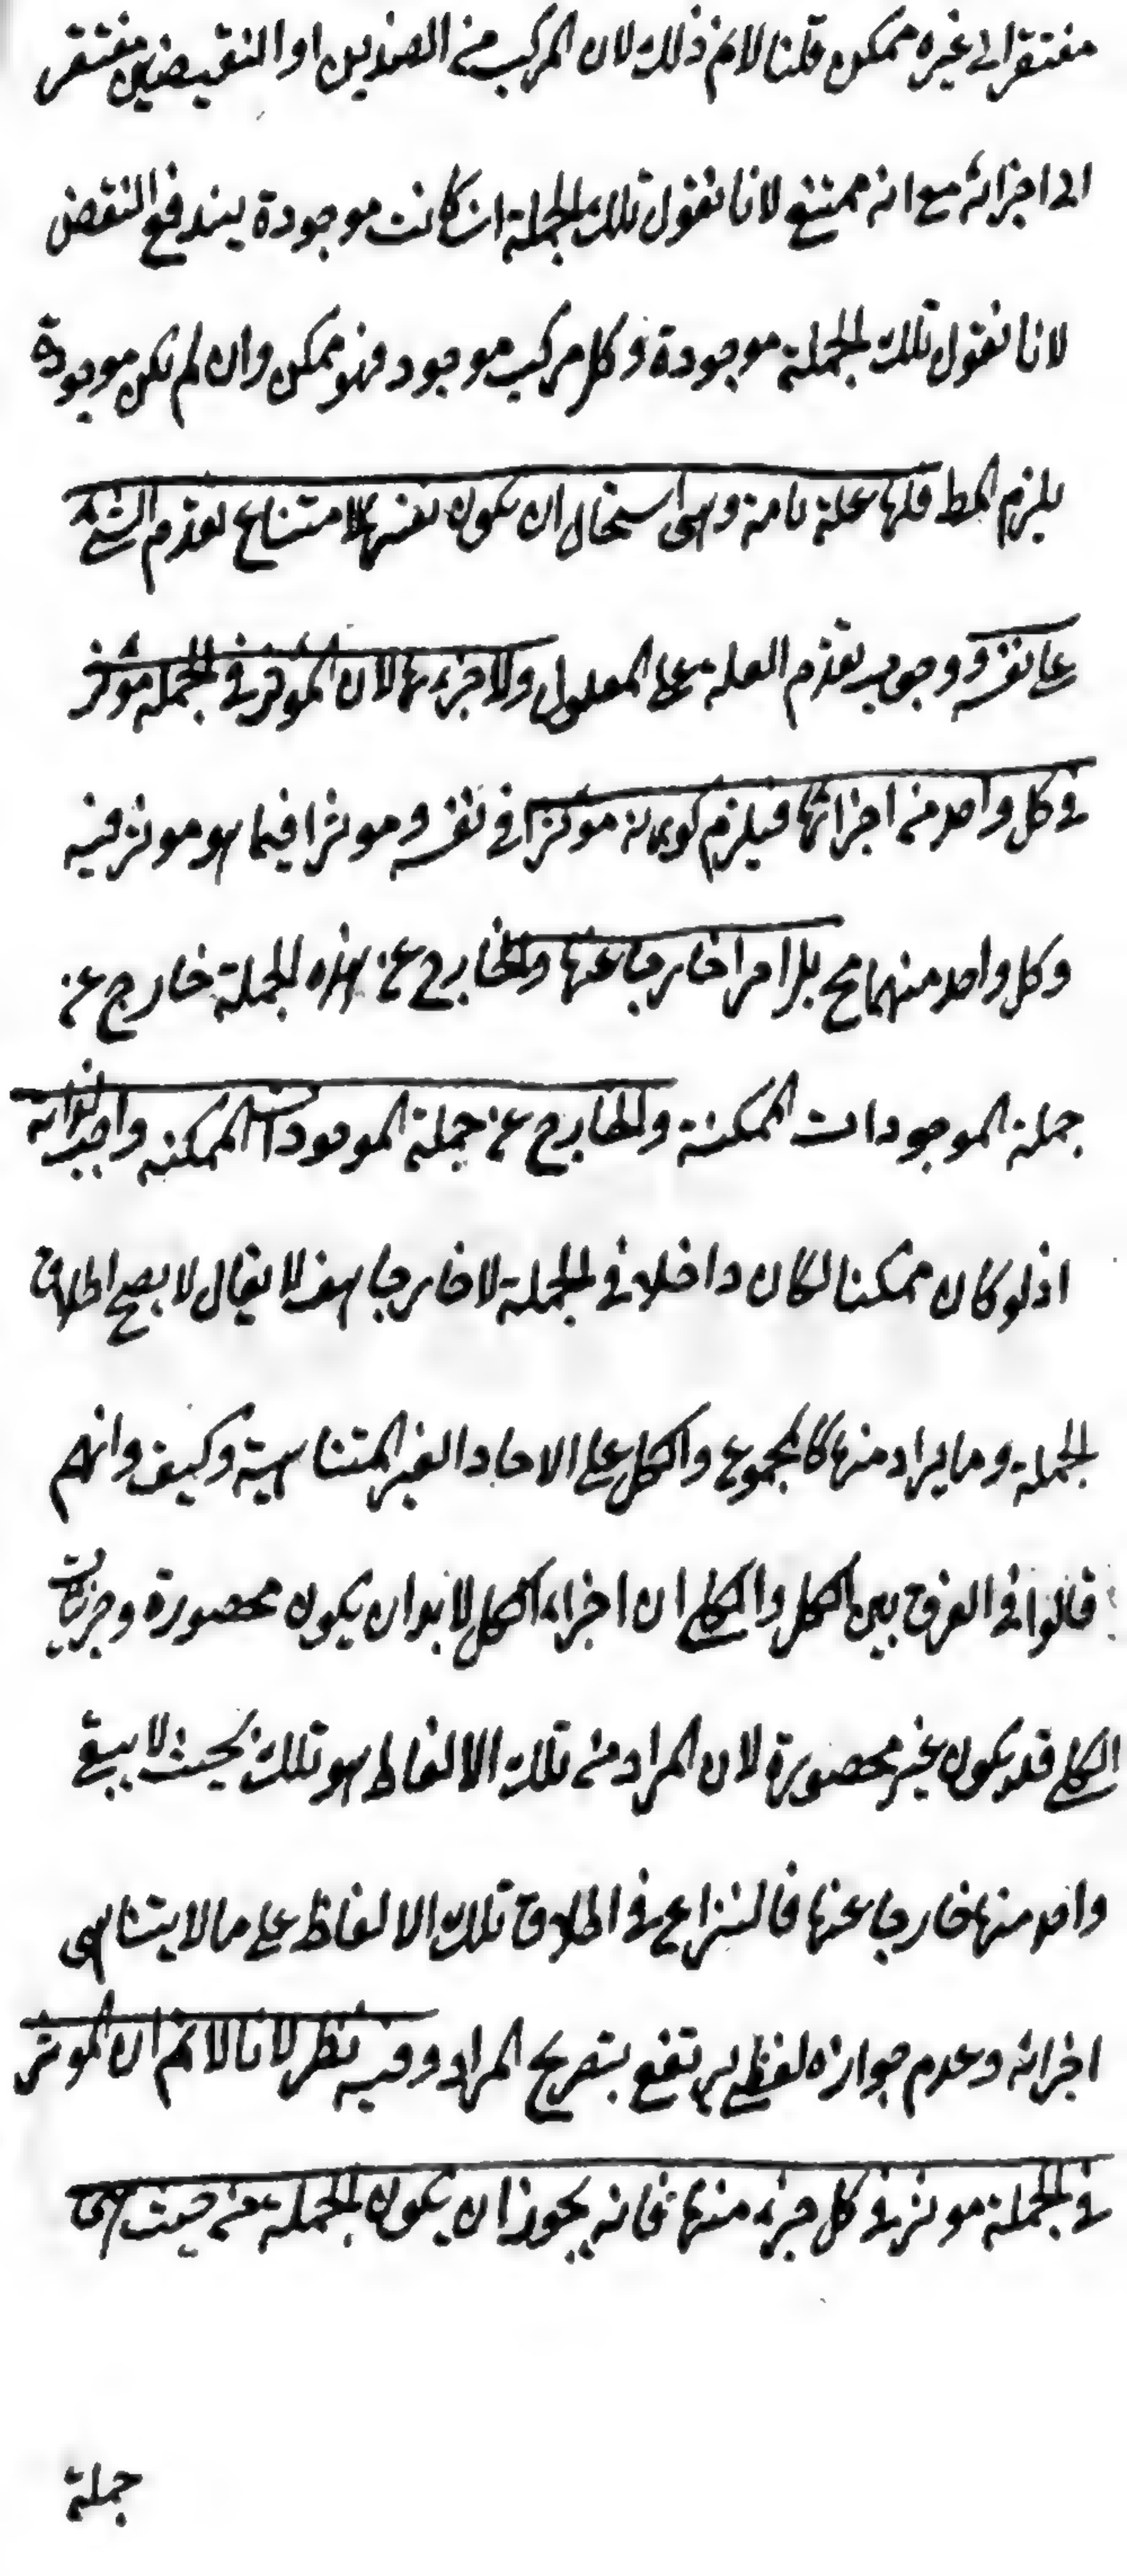 مفتقرا الى غيره ممكن قلنا لانم ذلك لان المركب من الضدين او النقيضين مفتقر
الى اجزائه مع انه ممتنع لانا نقول تلك الجملة ان كانت موجودة يندفع النقض
لانا نقول تلك الجملة موجودة وكل مركب موجود فهو ممكن وان لم يكن موجودة
يلزم المط فلها علة تامة وهى استحال ان يكون نفسها لامتناع تقدم الشئ
على نفسه ووجوب تقدم العلة على المعلول ولا جزءها لان المؤثر فى الجملة مؤثر
فى كل واحد من اجزائها فيلزم كونه مؤثرا فى نفسه ومؤثرا فيما هو مؤثر فيه
وكل واحد منهما مح بل امرا خارجا عنها والخارج عن هذه الجملة خارج عن
جملة الموجودات الممكنة والخارج عن جملة الموجودات الممكنة واجب لذاته
اذ لو كان ممكنا لكان داخلا فى الجملة لا خارجا هف لا يقال لا يصح اطلاق
الجملة وما يراد منها كالمجموع والكل على الاحاد الغير المتناهية وكيف وانهم
قالوا فى الفرق بين الكل والكلى ان اجزاء الكل لا بد ان يكون محصورة وجزئيات
الكلى قد يكون غير محصورة لان المراد من تلك الالفاظ هو تلك بحيث لا يبقى
واحد منها خارجا عنها فالنزاع فى اطلاق تلك الالفاظ على ما لا يتناهى
اجزائه وعدم جوازه لفظى يرتفع بتصريح المراد وفيه نظر لانا لانم ان المؤثر
فى الجملة مؤثر فى كل جزء منها فانه يجوز ان يكون الجملة من حيث هى
جملة